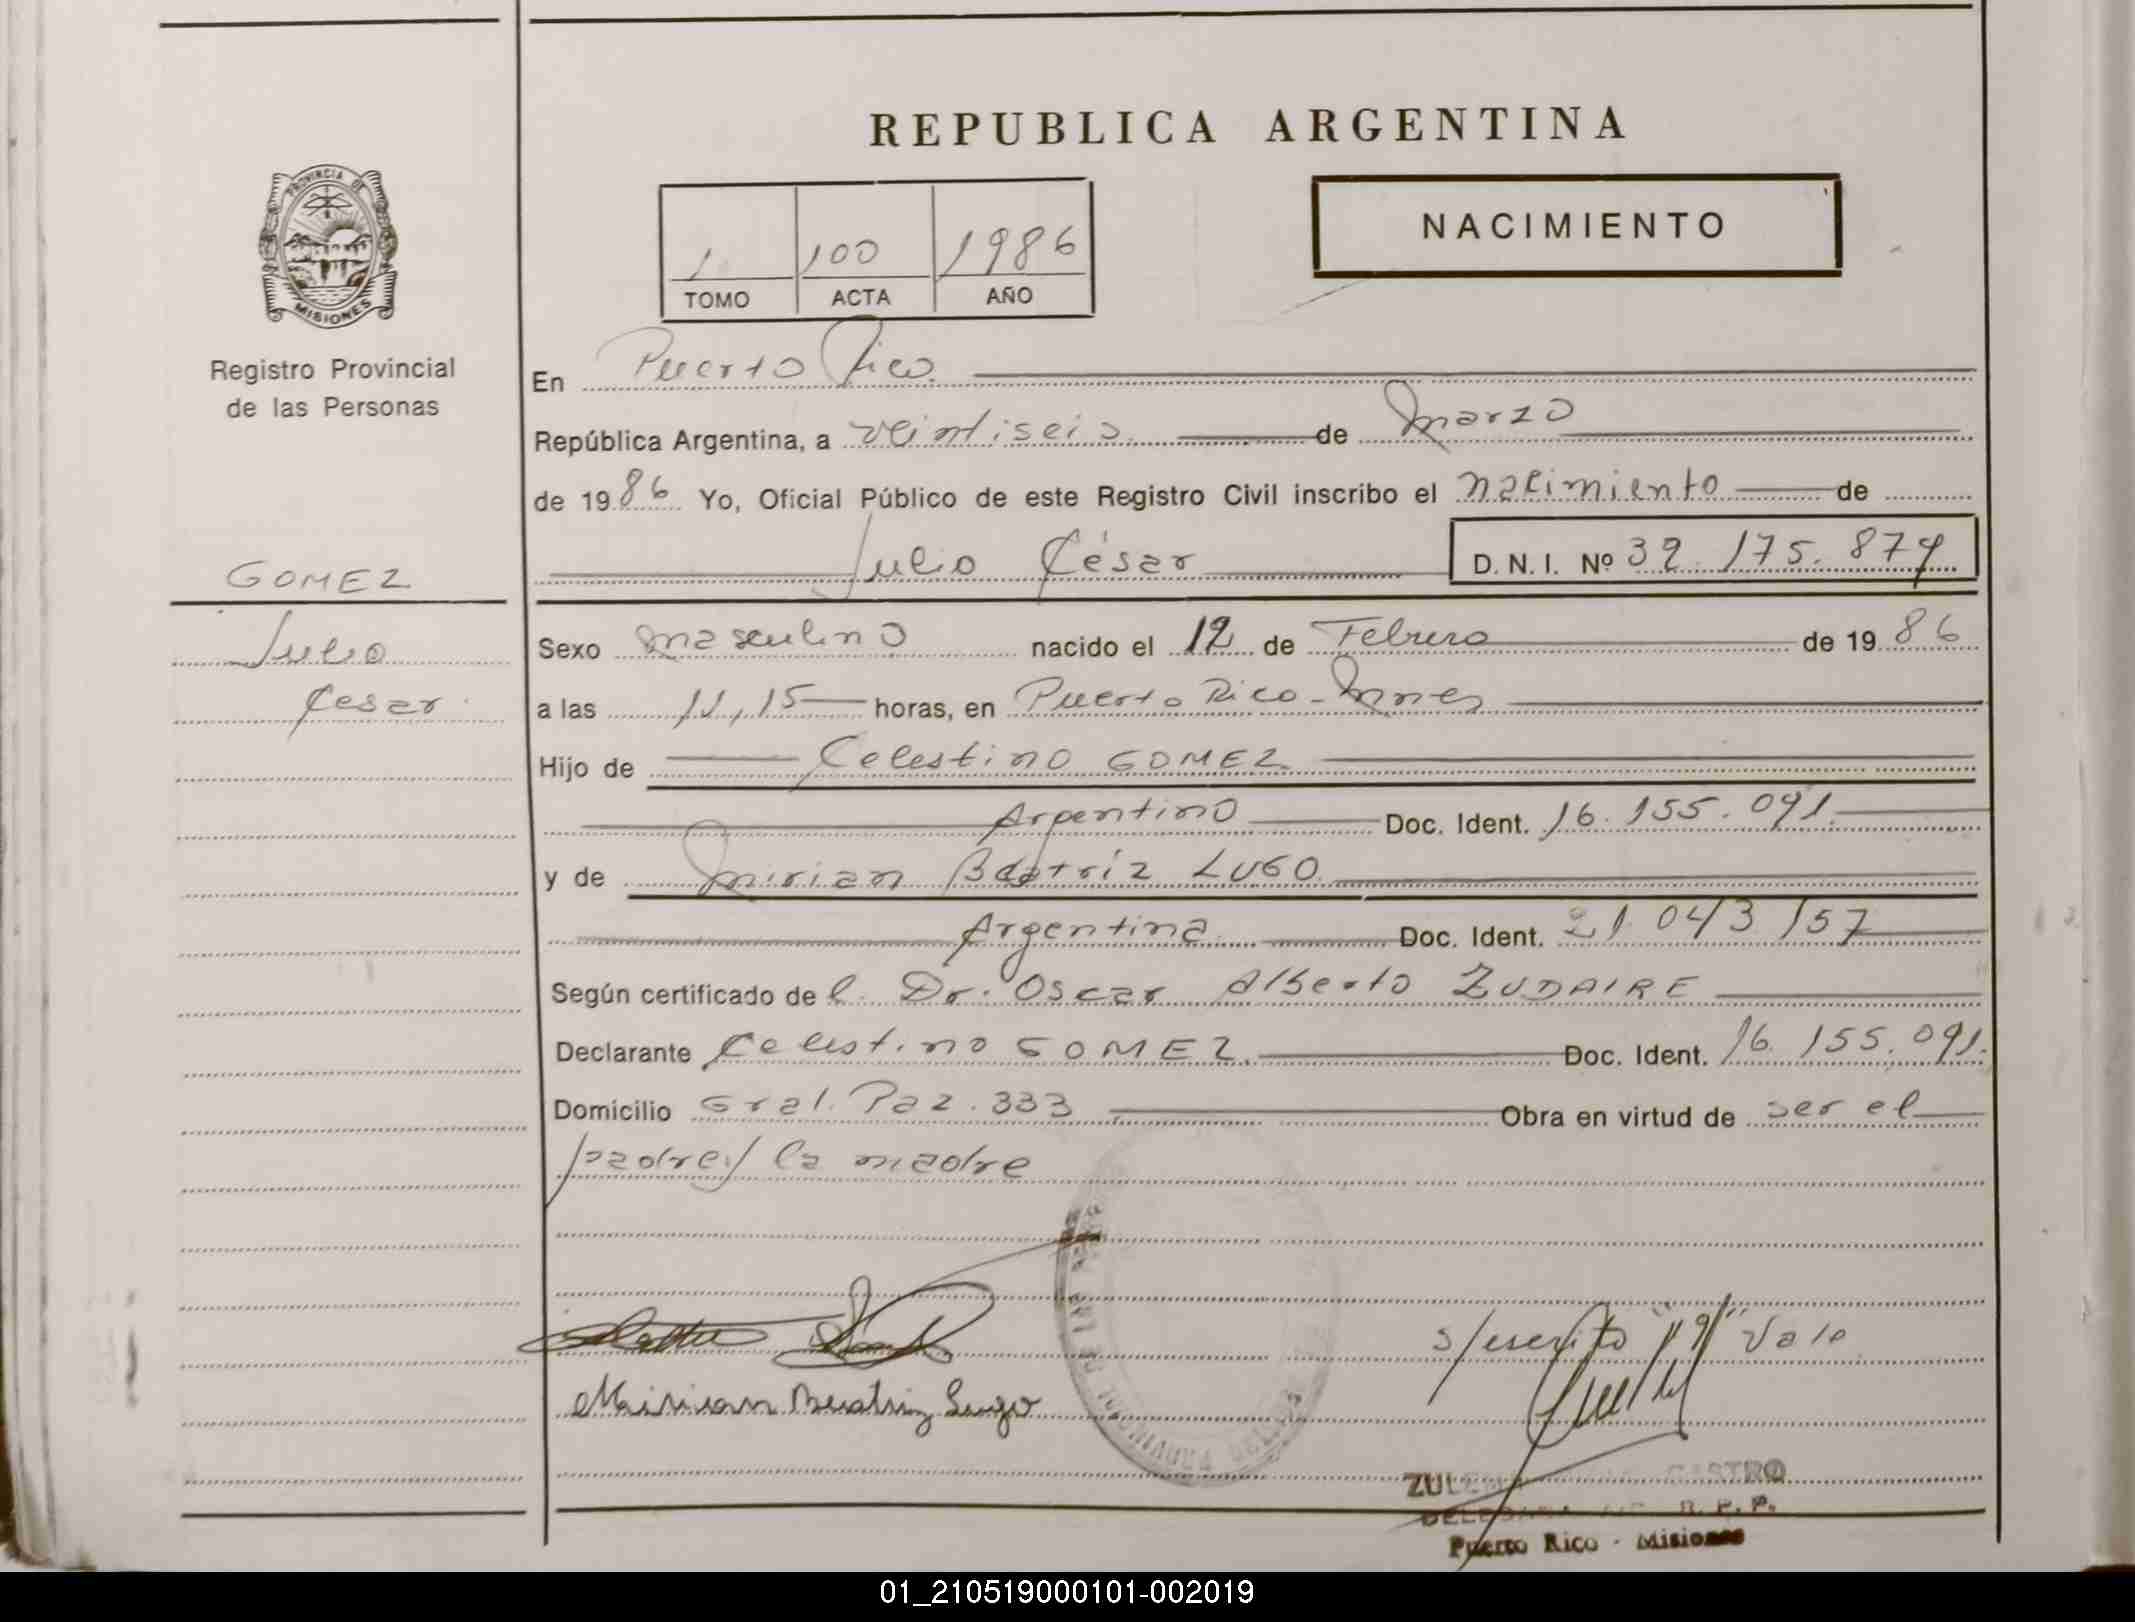 REPUBLICA ARGENTINA
PROVINCIA DE
MISIONES
Registro Provincial
de las Personas
1 100 1986
TOMO ACTA AÑO
NACIMIENTO
En Puerto Rico
República Argentina, a veintiseis de marzo
de 1986 Yo, Oficial Público de este Registro Civil inscribo el nacimiento de
Julio César D.N.I. Nº 32.175.879
GOMEZ
Julio
Cesar
Sexo masculino nacido el 12 de Febrero de 1986
a las 11,15 horas, en Puerto Rico - Mnes
Hijo de Celestino GOMEZ
Argentino Doc. Ident. 16.155.091
y de Mirian Beatríz LUGO
Argentina Doc. Ident. 21.043.157
Según certificado del Dr. Oscar Alberto ZUDAIRE
Declarante Celestino GOMEZ. Doc. Ident. 16.155.091.
Domicilio Gral. Paz. 333 Obra en virtud de ser el
padre y la madre
s/escrito "9" Vale
Mirian Beatriz Lugo
CASTRO
R. P. P.
Puerto Rico - Misiones
01_210519000101-002019